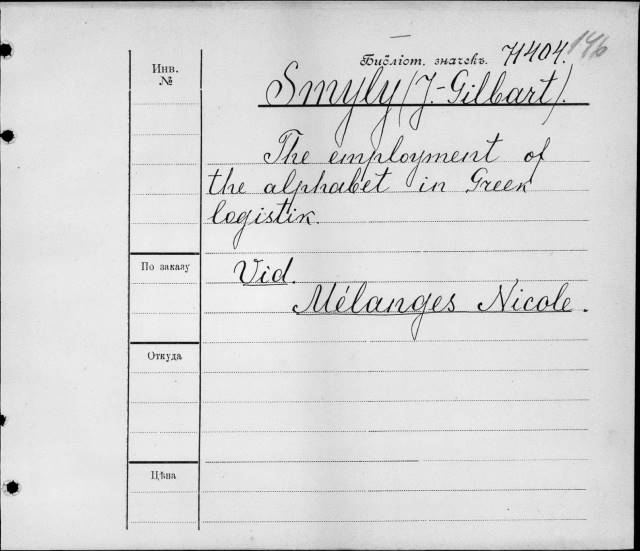 Библіот. значекъ. H404. 146
Инв. №
Smyly (J.-Gilbart).
The employment of
the alphabet in Greek
logistik.
По заказу
Vid.
Mélanges Nicole.
Откуда
Цѣна